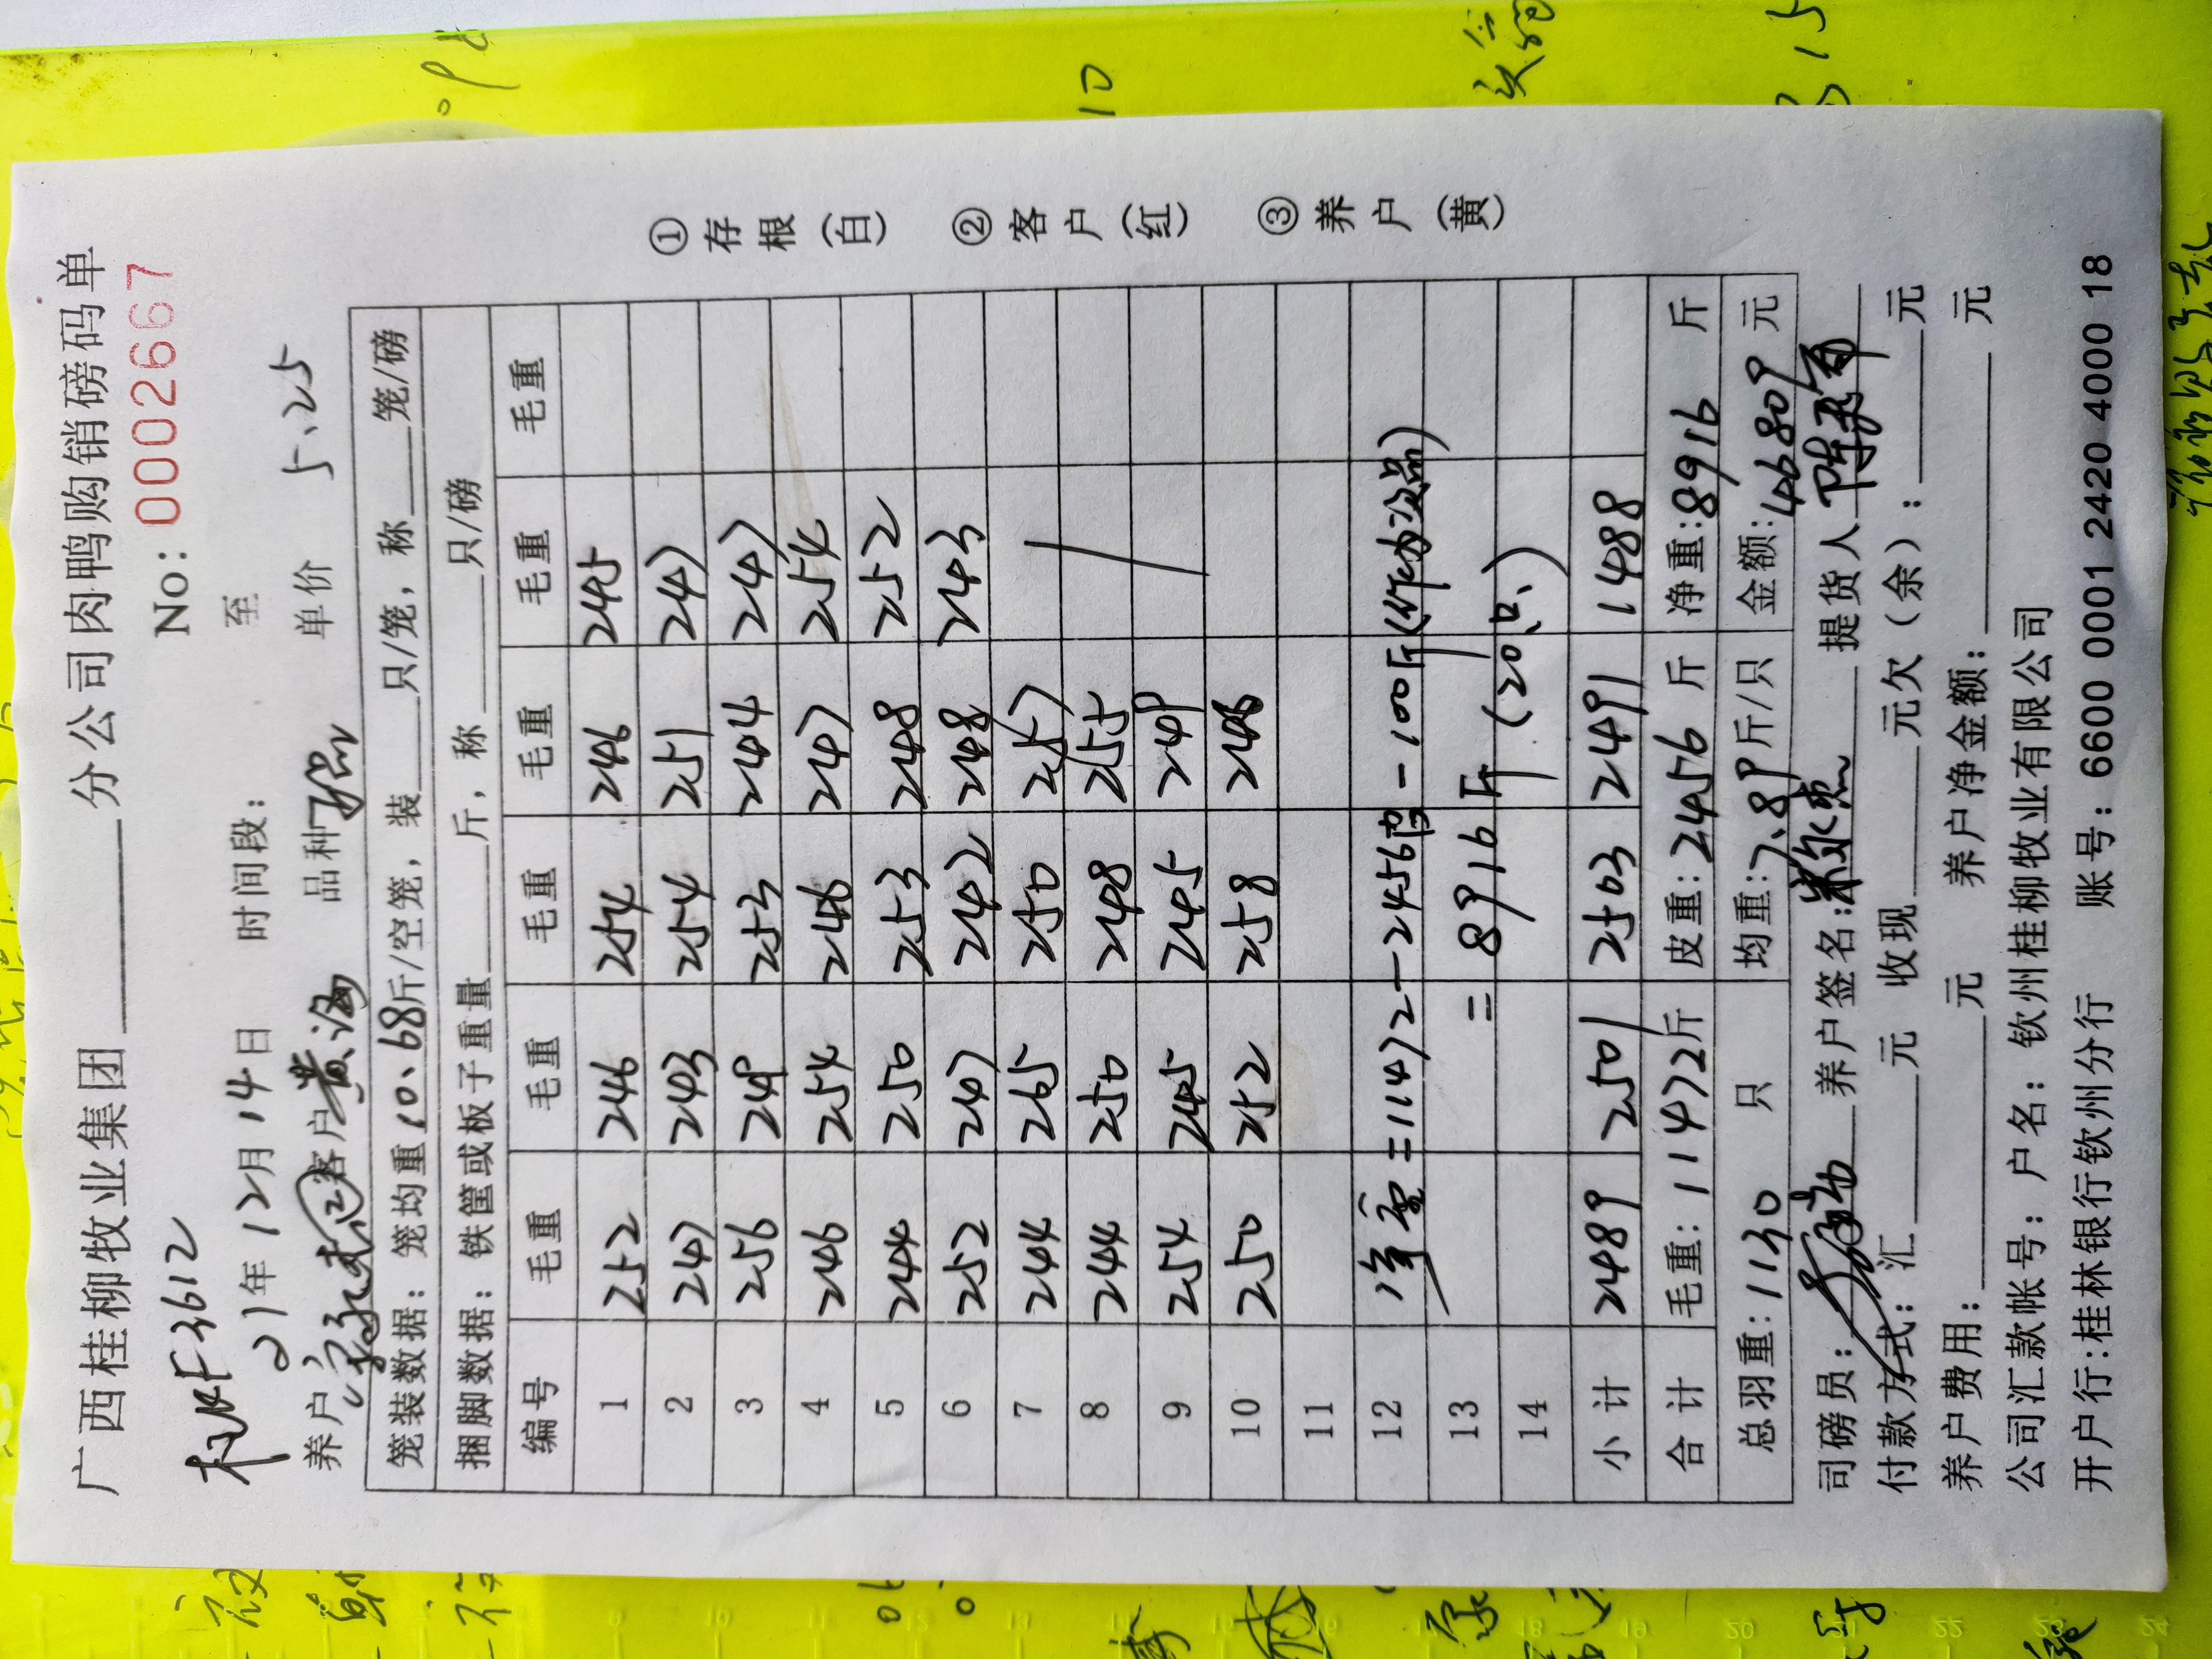 广西桂柳牧业集团 分公司肉鸭购销磅码单
No: 0002667
F3612
21年12月14日 时间段: 至
养户 客户黄海 品种 单价 5.25
笼装数据: 笼均重10.68斤/空笼, 装 只/笼, 称 笼/磅
捆脚数据: 铁筐或板子重量 斤, 称 只/磅
编号 毛重 毛重 毛重 毛重 毛重 毛重
1 252 246 254 246 245
2 247 243 254 251 247
3 256 249 253 244 247
4 246 254 246 247 254
5 244 250 253 248 252
6 252 247 242 248 243
7 244 265 250 257
8 244 250 248 255
9 254 245 245 249
10 250 252 258 246
11
12 净重=11472-2456-100斤(作为次品)
13 =8916斤
14 (20只)
小计 2489 2501 2503 2491 1488
合计 毛重: 11472斤 皮重: 2456斤 净重: 8916 斤
总羽重: 1130 只 均重: 7.89斤/只 金额: 46809元
司磅员: 养户签名: 提货人
付款方式: 汇 元 收现 元欠(余): 元
养户费用: 元 养户净金额: 元
公司汇款帐号: 户名: 钦州桂柳牧业有限公司
开户行:桂林银行钦州分行 账号: 6600 0001 2420 4000 18
①存根(白) ②客户(红) ③养户(黄)